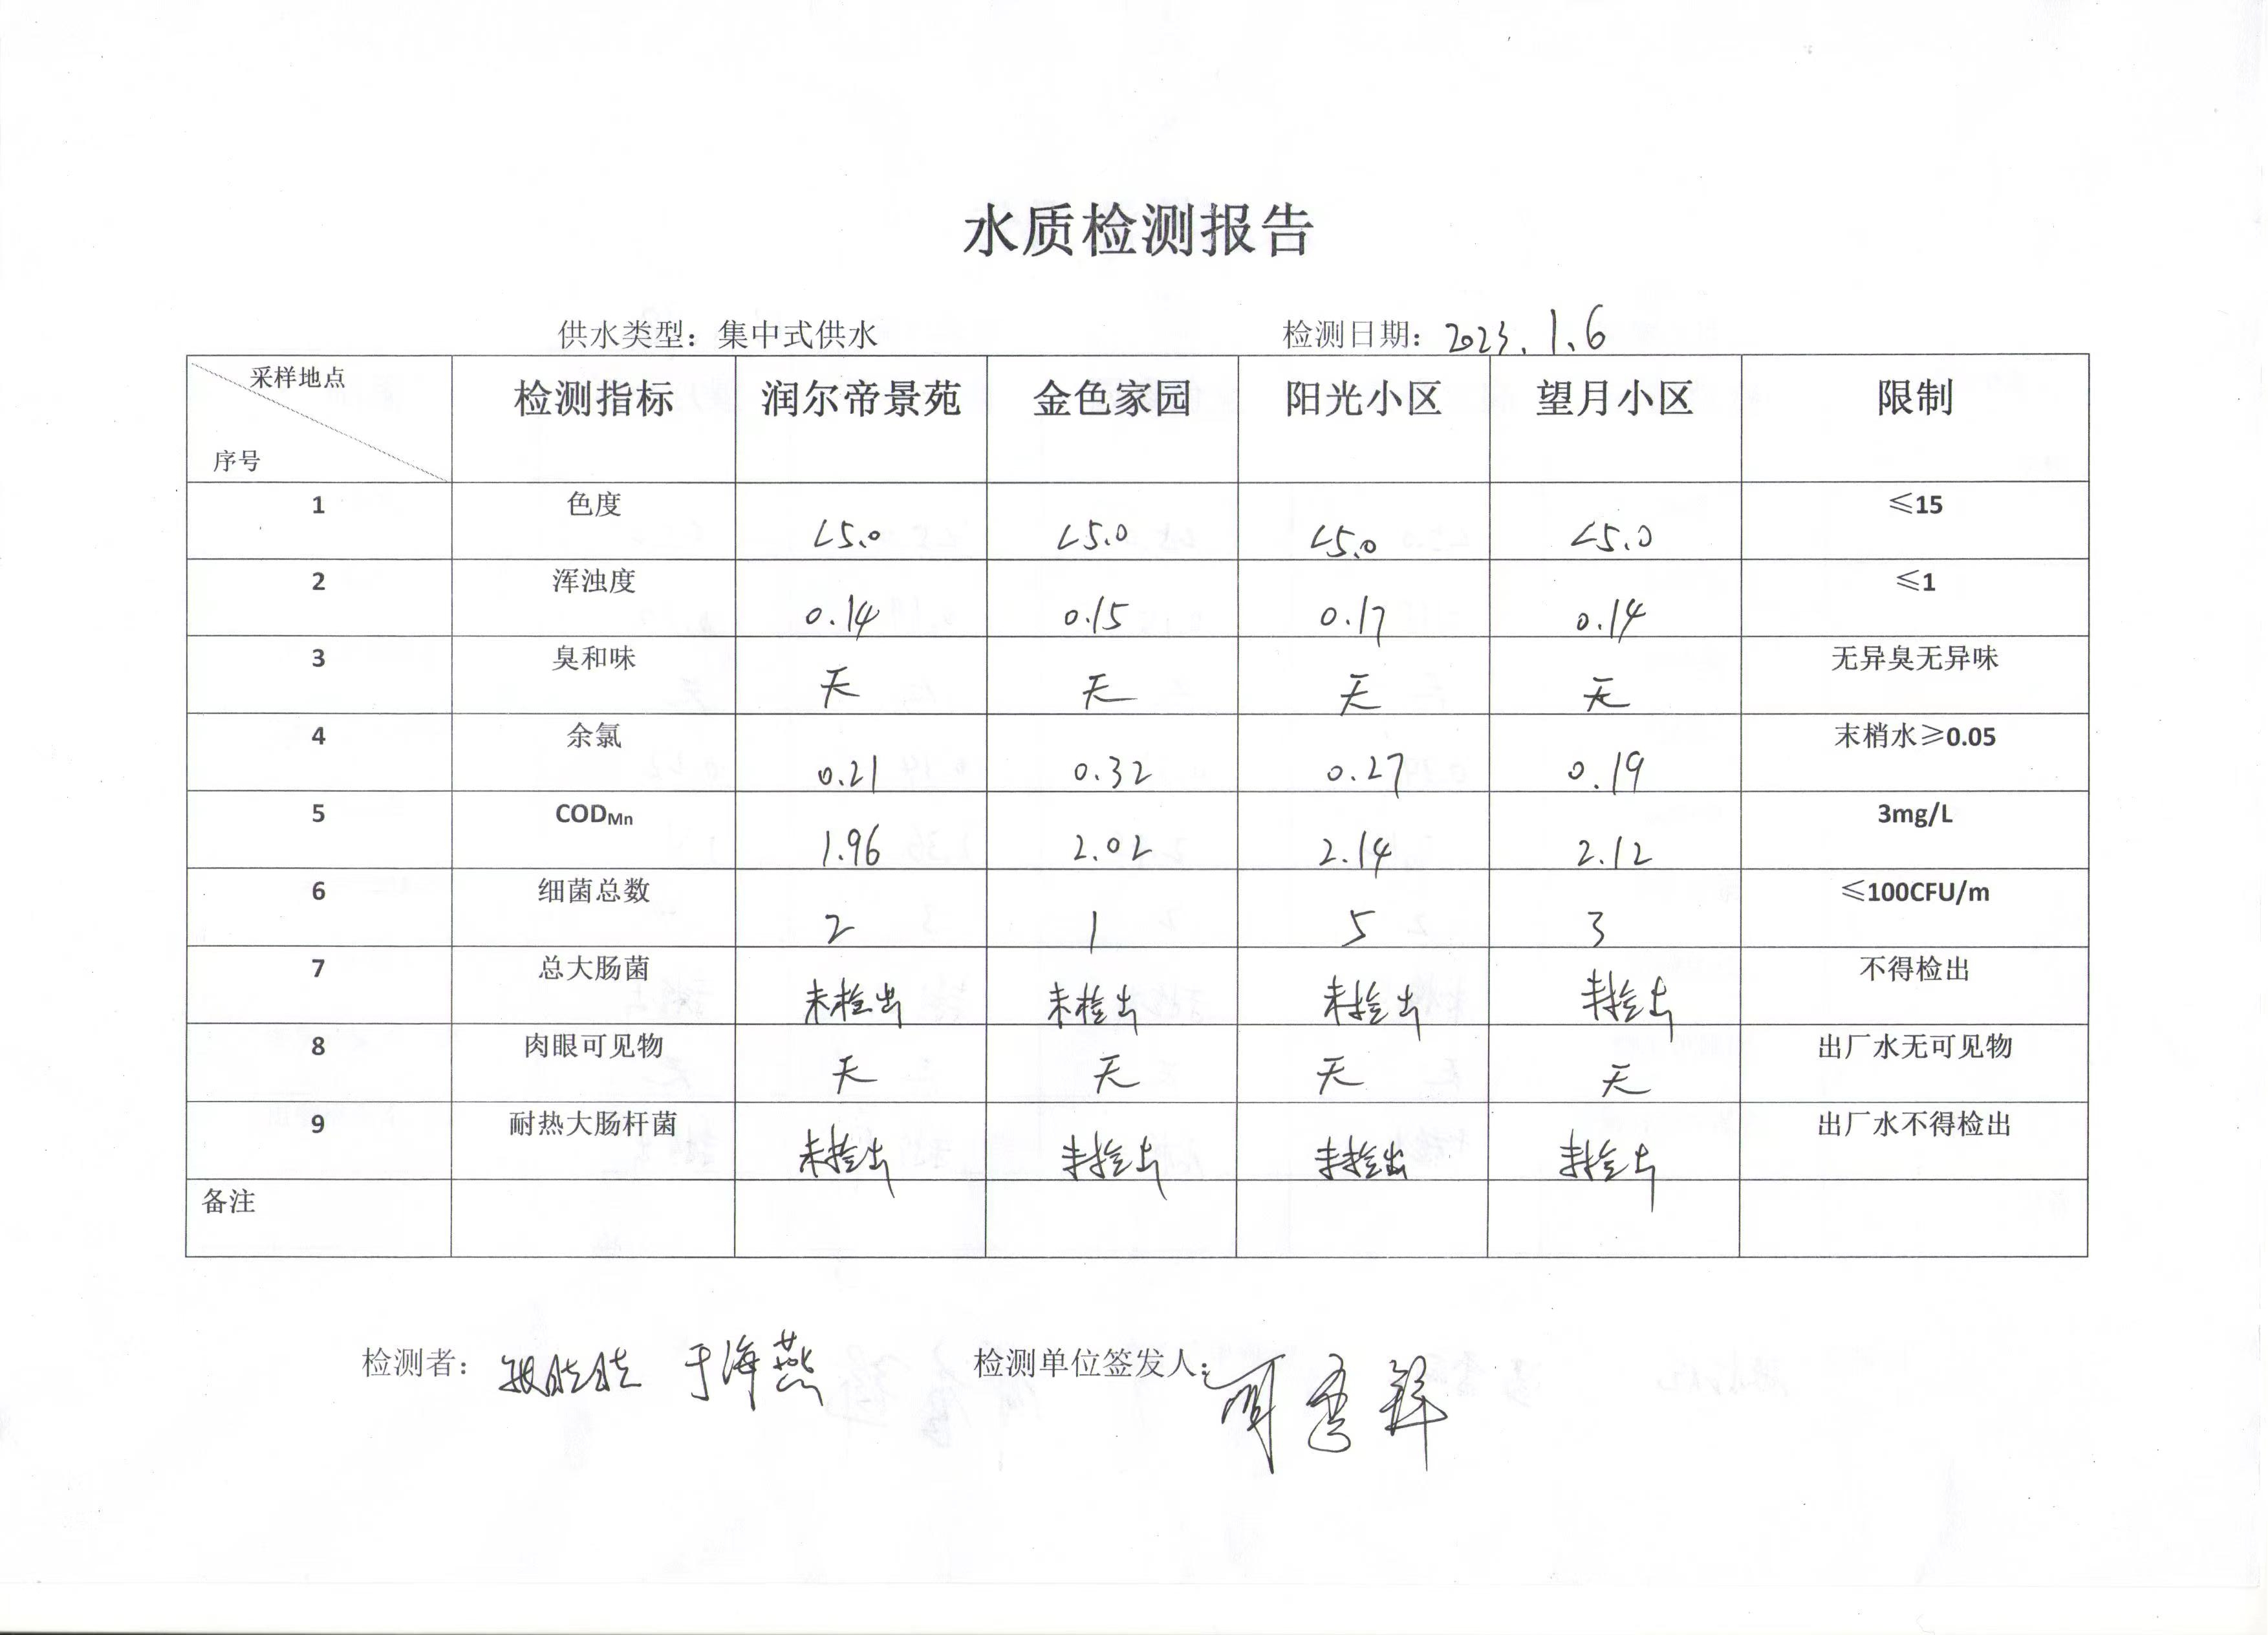 水质检测报告
供水类型：集中式供水 检测日期：2023.1.6
采样地点 序号 检测指标 润尔帝景苑 金色家园 阳光小区 望月小区 限制
1 色度 <5.0 <5.0 <5.0 <5.0 ≤15
2 浑浊度 0.14 0.15 0.17 0.14 ≤1
3 臭和味 无 无 无 无 无异臭无异味
4 余氯 0.21 0.32 0.27 0.19 末梢水≥0.05
5 CODMn 1.96 2.02 2.14 2.12 3mg/L
6 细菌总数 2 1 5 3 ≤100CFU/m
7 总大肠菌 未检出 未检出 未检出 未检出 不得检出
8 肉眼可见物 无 无 无 无 出厂水无可见物
9 耐热大肠杆菌 未检出 未检出 未检出 未检出 出厂水不得检出
备注
检测者： 于海燕 检测单位签发人：